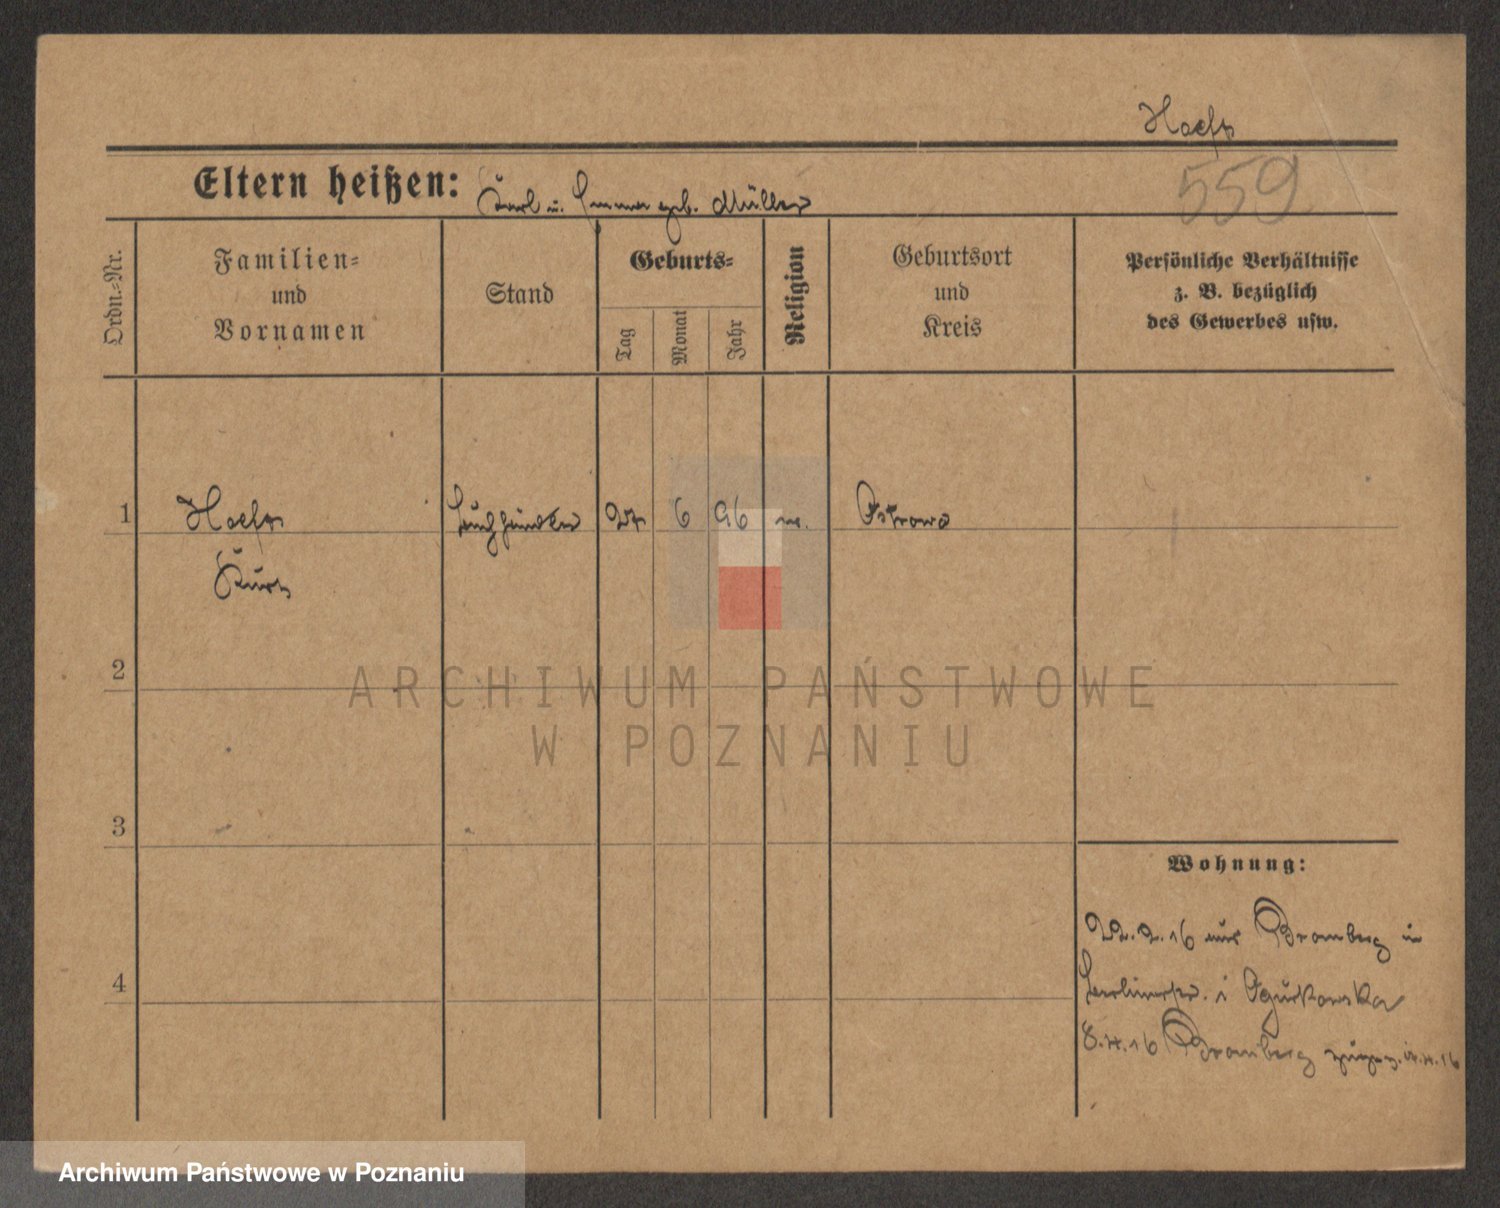 Hoeft
559
Eltern heißen: Karl u. Emma geb. Müller
Ordn.-Nr.
Familien-
und
Vornamen
Stand
Geburts-
Tag
Monat
Jahr
Religion
Geburtsort
und
Kreis
Persönliche Verhältnisse
z. B. bezüglich
des Gewerbes usw.
1 Hoeft 6 96 Ostrowo
Kurt
2
ARCHIWUM PAŃSTWOWE
W POZNANIU
3
Wohnung:
22.2.16 aus Bromberg in
4
Berlinerstr. Ogurkowska
8.4.16 Bromberg
Archiwum Państwowe w Poznaniu